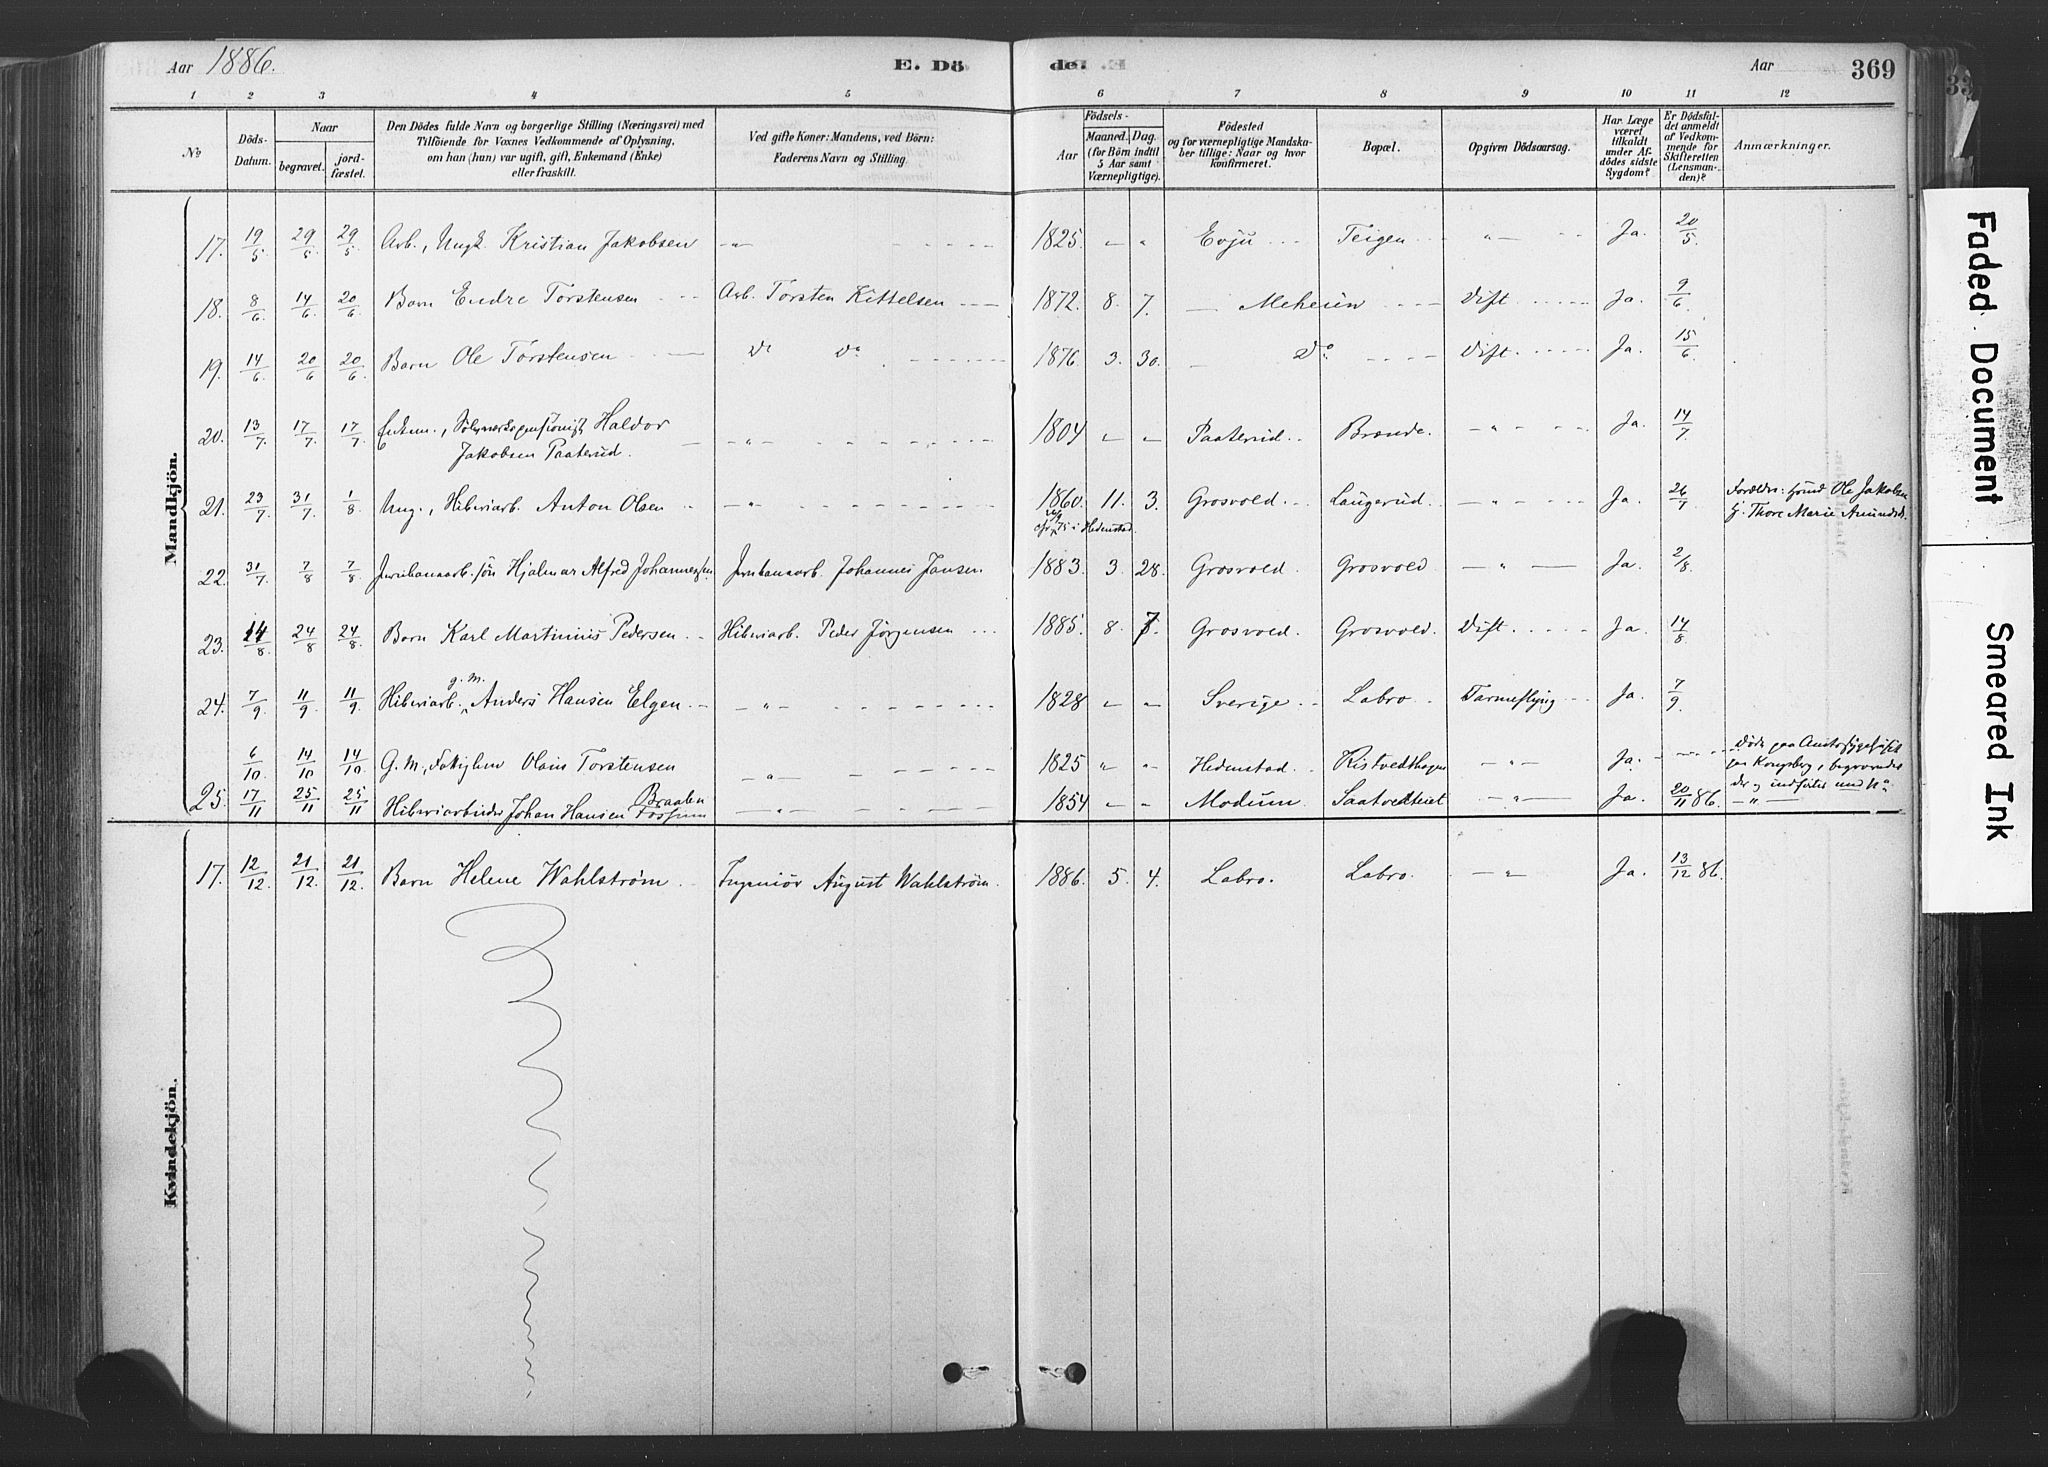 Aar 1886. E. Dö
de. Aar 369
1 2 3 4 5
6 7 8 9 10 11 12
No
Döds-Datum.
Naar
begravet. jord-fæstet.
Den Dödes fulde Navn og borgerlige Stilling (Næringsvei) med
Tilföiende for Voxnes Vedkommende af Oplysning,
om han (hun) var ugift, gift, Enkemand (Enke)
eller fraskilt.
Ved gifte Koner: Mandens, ved Börn:
Faderens Navn og Stilling.
Födsels-
Aar Maaned. Dag.
(for Börn indtil
5 Aar samt
Værnepligtige).
Födested
og for værnepligtige Mandska-
ber tillige: Naar og hvor
konfirmeret.
Bopæl.
Opgiven Dödsaarsag.
Har Læge
været
tilkaldt
under Af-
dödes sidste
Sygdom?
Er Dödsfal-
det anmeldt
af Vedkom-
mende for
Skifteretten
(Lensman-
den)?
Anmærkninger.
Mandkjön.
17. 19/5 29/5 29/5 Arb., Ungk. Kristian Jakobsen -"- 1825. " " Evju Teigen " Ja. 20/5.
18. 8/6. 14/6. 20/6. Barn Endre Torstensen Arb. Torsten Kittelsen 1872. 8. 7. Meheien Dift Ja. 9/6.
19. 14/6. 20/6 20/6. Barn Ole Torstensen Do Do 1876. 3. 30. Do Dift. Ja. 15/6.
20. 13/7. 17/7. 17/7. Enkem., Sölvverkspensionist Haldor
Jakobsen Paaterud. " 1804 " " Paaterud. Brænde. " Ja. 14/7.
21. 23/7. 31/7. 1/8 Ung., Hiberiarb. Anton Olsen -"- 1860. 11. 3. Grosvold. Laugerud. " Ja. 26/7 Forældre: Ole Jakobsen
Hedenstad. Thore Marie Amundsd.
22. 31/7. 7/8 7/8. Jernbanearb. søn Hjalmar Alfred Johannessen Jernbanearb. Johannes Jansen 1883. 3. 28. Grosvold Grosvold " Ja. 2/8.
23. 14/8. 24/8 24/8. Barn Karl Martinius Pedersen Hiberiarb. Peder Jörgensen 1885. 8. 7. Grosvold. Grosvold. Dift. Ja. 14/8.
24. 7/9. 11/9. 11/9. Hiberiarb. g. m. Anders Hansen Elgen -"- 1828 " " Sverige Labro Tarmeslyng Ja. 7/9.
6/10. 14/10 14/10 G. M., Olain Torstensen -"- 1825 " " Hedenstad. Kistvedthagen -"- Ja. Döde paa Amtssygehuset
paa Kongsberg, begravedes
der og indförtes
25. 17/11 25/11 25/11 Hiberiarbeider Johan Hansen Braaten
Fossum -"- 1854 " " Modum Saatvedteiet -"- Ja. 20/11 86. -"-
Kvindekjön.
17. 12/12. 21/12. 21/12. Barn Helene Wahlström Ingeniör August Wahlström. 1886. 5. 4. Labro. Labro. -"- Ja. 13/12 86.
Faded Document
Smeared Ink